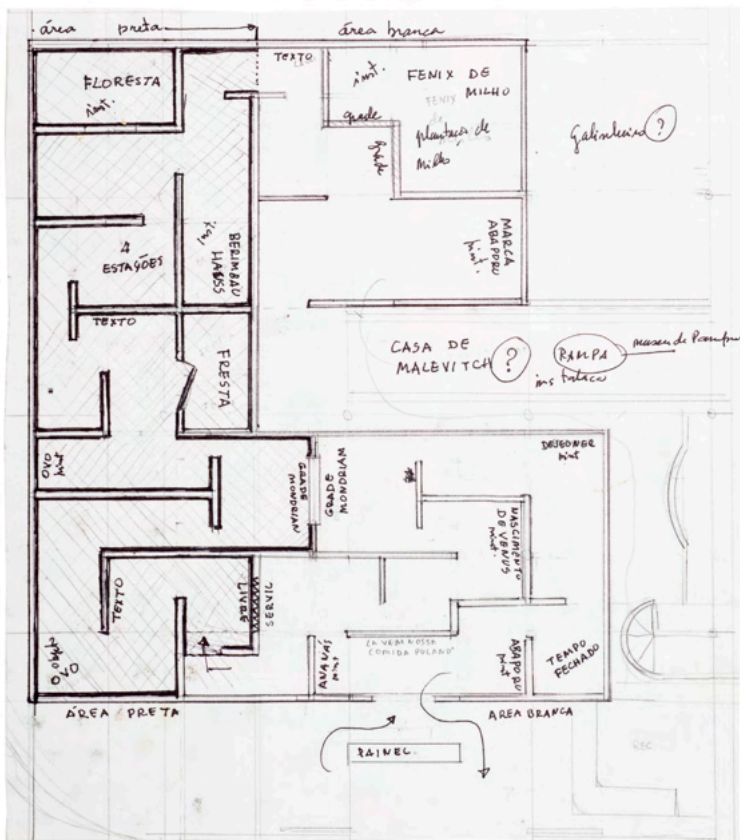 área preta
área branca
TEXTO
FLORESTA
inst.
inst.
FENIX DE
MILHO
FENIX
DE
grade
plantação de
milho
grade
Galinheiro ?
4
ESTAÇÕES
BERIMBAU
HAUSS
MARCA
ABAPORU
pint.
TEXTO
FRESTA
CASA DE
MALEVITCH ?
RAMPA
OVO
pint
GRADE
MONDRIAN
GRADE
MONDRIAM
DEJEONER
pint
NASCIMENTO
DE VENUS
pint.
TEXTO
LIVRE
SERVIL
OVO
objeto
ANANÁS
pint
LÁ VEM NOSSA
COMIDA PULANDO
ABAPORU
pint
TEMPO
FECHADO
ÁREA PRETA
AREA BRANCA
PAINEL.